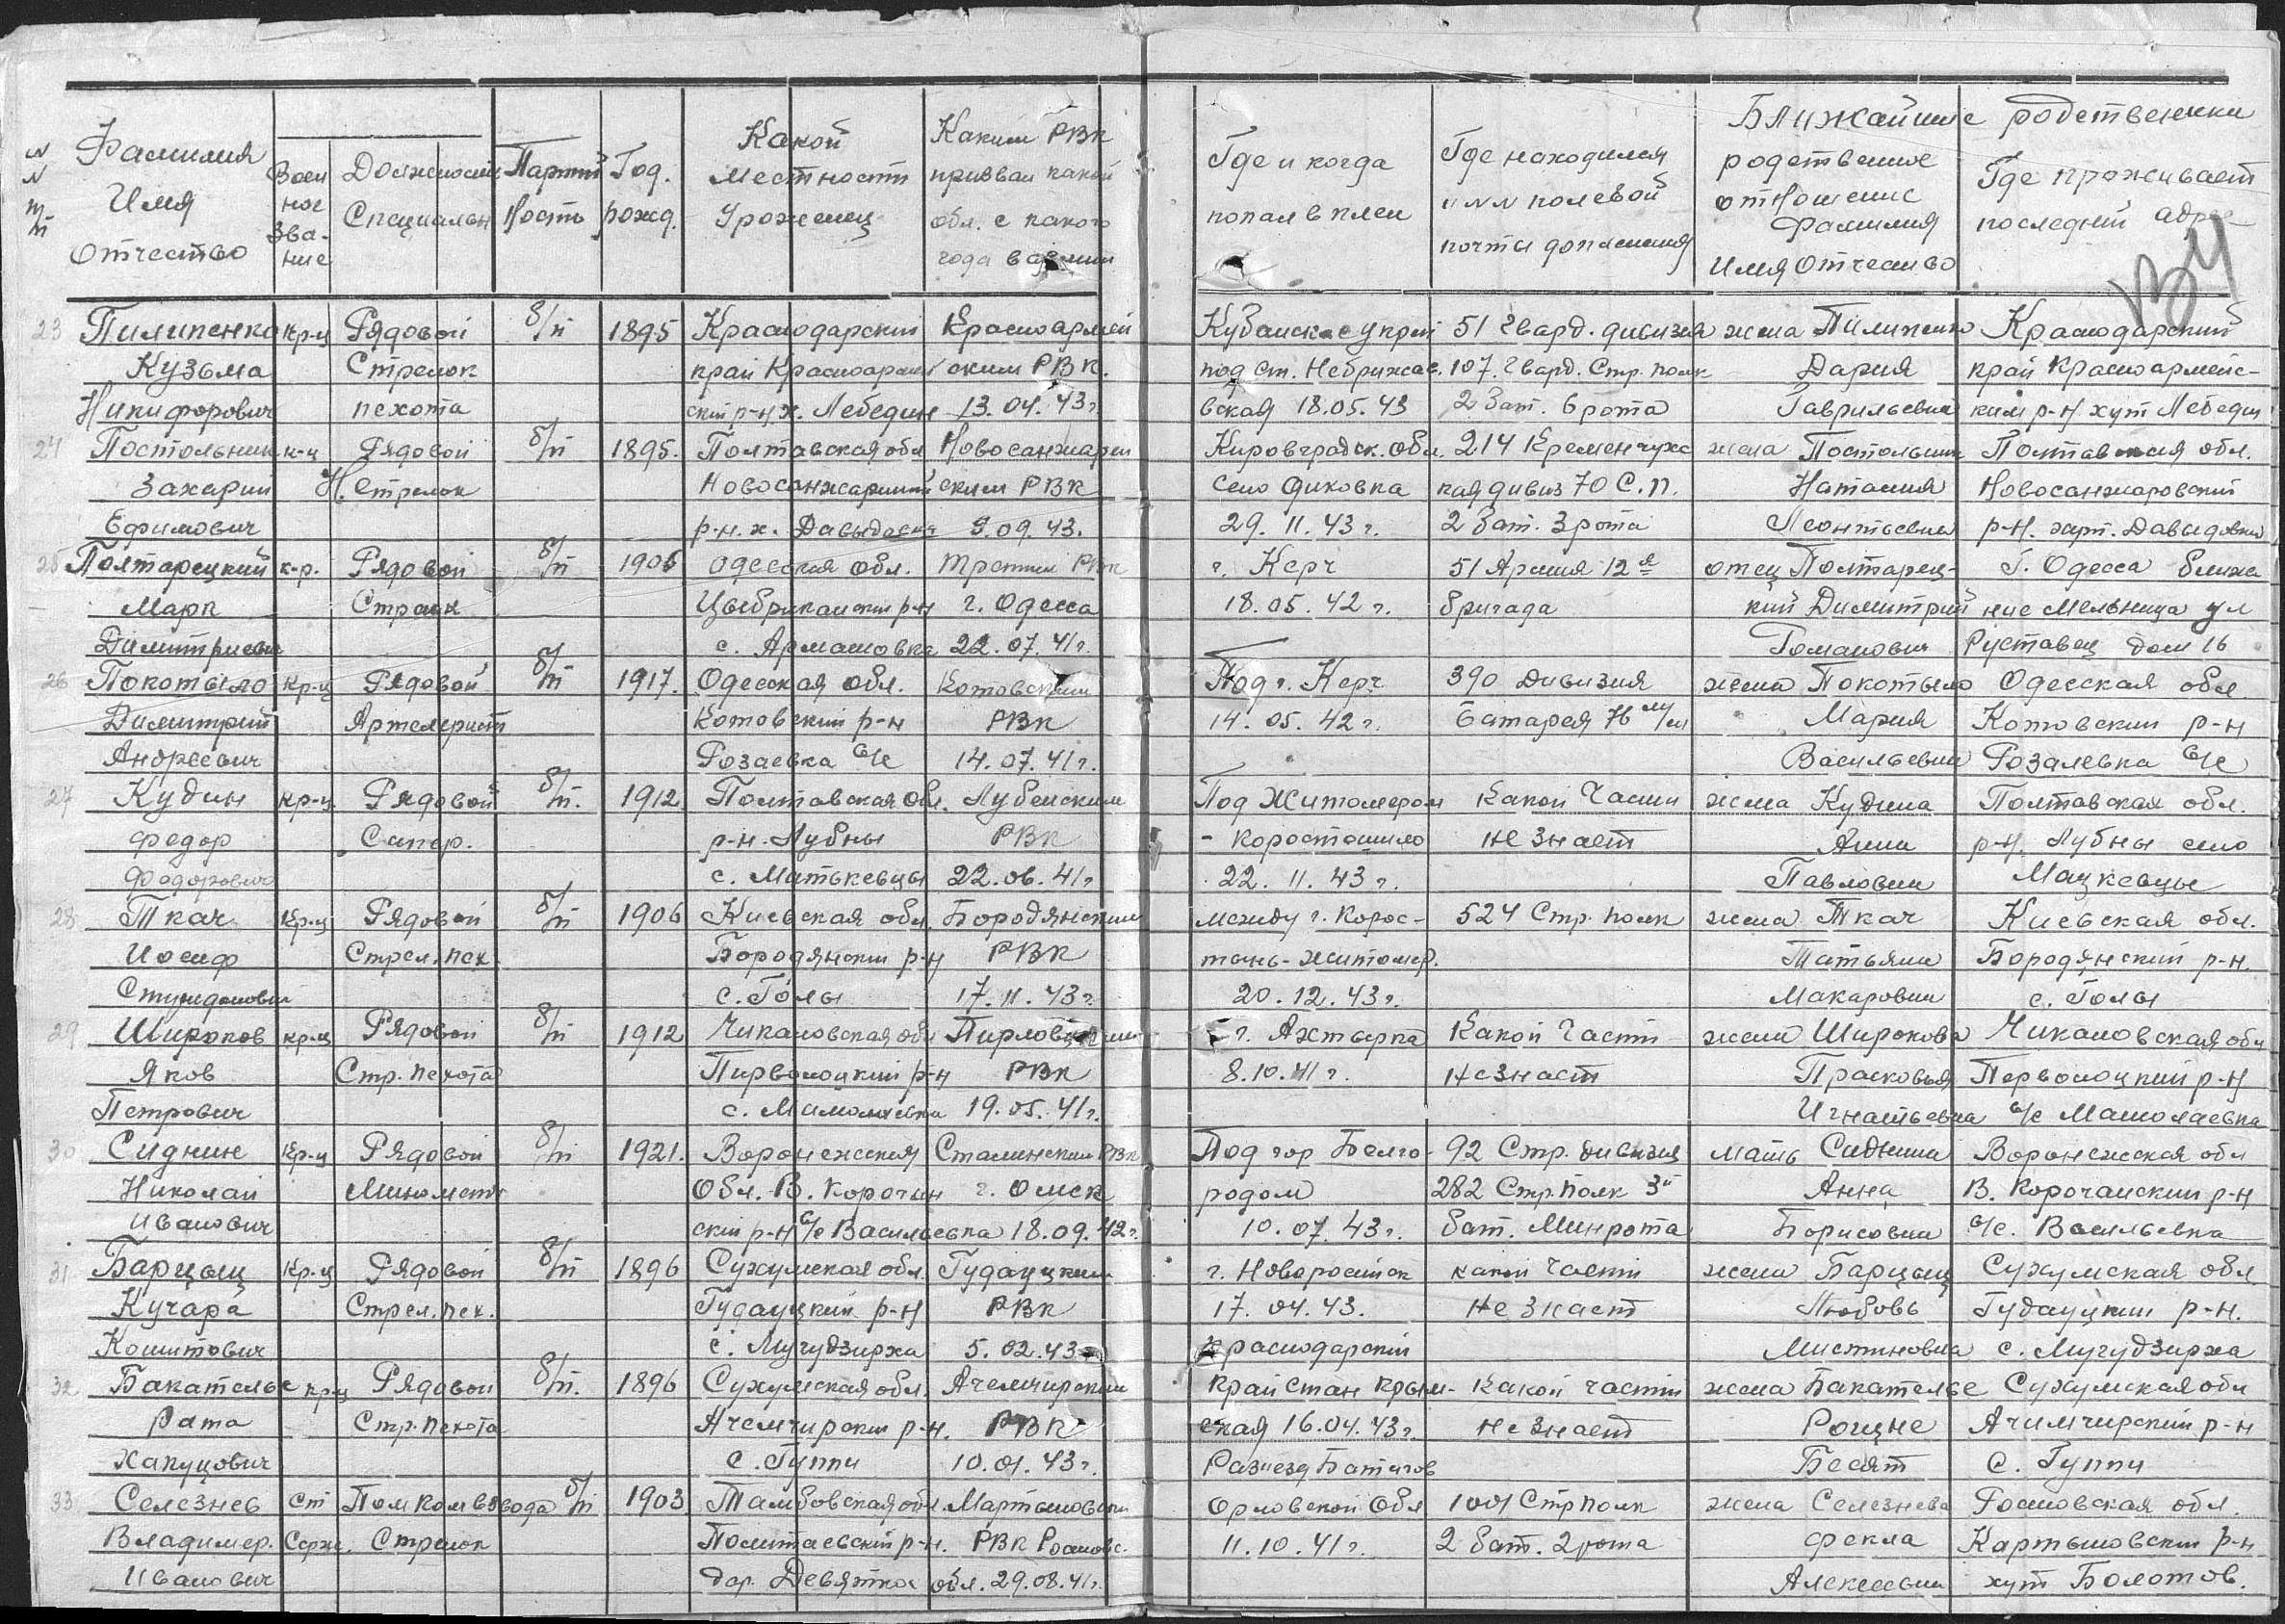 №№ пп Фамилия Имя Отчество Воен ное Зва- ние Должность Специальн Партий ность Год. рожд. Какой местности Уроженец Каким РВК призван какой обл. с какого года в армии Где и когда попал в плен Где находился и №№ полевой почты до пленения Ближайшие родственники родственное отношение Фамилия Имя Отчество Где проживает последний адрес
23 Пилипенко кр-ц Рядовой б/п 1895 Краснодарский Красноармей Кубанск 51 Гвард. дивизия жена Пилипенко Краснодарский
Кузьма Стрелок край Красноармей ским РВК. под ст. Небрижаев. 107. Гвард. Стр. полк Дария край Красноармейс-
Никифорович пехота ский р-н х. Лебедин 13.04.43г. вская 18.05.43 2 бат. 6 рота Гаврильевна ким р-н хут Лебедин
24 Постольник к-ц Рядовой б/п 1895. Полтавская обл Новосанжарск Кировградск. обл. 214 Кременчугс жена Постольник Полтавская обл.
Захарий Н. Стрелок Новосанжарский ским РВК село Диковка кая дивиз 70 С.П. Наталия Новосанжаровский
Ефимович р-н. х. Давыдовка 9.09.43. 29.11.43г. 2 бат. 3 рота Леонтьевна р-н. харт. Давыдовка
25 Полтарецкий к-р. Рядовой б/п 1905 Одесская обл. Третий РВК г. Керч 51 Армия 12я отец Полтарец- г. Одесса ближа
Марк Стрелк Цыбрикаиский р-н г. Одесса 18.05.42г. бригада кий Димитрий ние Мельница ул
Димитриевич с. Армашовка 22.07.41г. Романович Руставец дом 16
26 Покотыло кр-ц Рядовой б/п 1917. Одесская обл. Котовским Под г. Керч 390 дивизия жена Покотыло Одесская обл
Димитрий Артелерист Котовский р-н РВК 14.05.42г. батарея 76 м/м Мария Котовский р-н
Андреевич Розаевка с/с 14.07.41г. Васильевна Розалевка с/с
27 Кудин кр-ц Рядовой б/п. 1912 Полтавская обл. Лубенским Под Житомером какой части жена Кудина Полтавская обл.
Федор Сапер. р-н. Лубны РВК - Коростошило не знает Анна р-н. Лубны село
Фодорович с. Матькевцы 22.06.41г 22.11.43г. Павловна Мацкевцы
28 Ткач кр-ц Рядовой б/п 1906 Киевская обл. Бородянским между г. Корос- 524 Стр. полк жена Ткач Киевская обл.
Иосиф Стрел. пех. Бородянский р-н РВК тень-житомер. Татьяна Бородянский р-н.
с. Голы 17.11.43г. 20.12.43г. Макаровна с. Голы
29 Широков кр-ц Рядовой б/п 1912 Чикаловская обл г. Ахтырка Какой части жена Широкова Чикаловская обл
Яков Стр. пехота Пирволоцкий р-н РВК 8.10.41г. не знает Прасковья Перволоцкий р-н
Петрович с. Мамолаевка 19.05.41г. Игнатьевна с/с Машолаевка
30 Сиднин кр-ц Рядовой б/п 1921. Воронежская Сталинским РВК Под гор Белго- 92 Стр. дивизия мать Сиднина Воронежская обл
Николай Минометч обл. В. Корочан г. Омск родом 282 Стр. полк 3й Анна В. Корочанский р-н
Иванович ский р-н с/с Васильевка 18.09.42г. 10.07.43г. бат. Минрота Борисовна с/с. Васильевка
31 Барцыц кр-ц Рядовой б/п 1896 Сухумская обл. Гудауцким г. Новоросийск какой части жена Барцыц Сухумская обл
Кучара Стрел. пех. Гудауцкий р-н РВК 17.04.43. не знает Любовь Гудауцкий р-н.
Коштович с. Мугудзирха 5.02.43 Краснодарский Мистиновна с. Мугудзирха
32 Бакателье кр-ц Рядовой б/п. 1896 Сухумская обл. Ачемчирским край стан Крым- Какой части жена Бакателье Сухумская обл
Рата Стр. пехота Ачемчирский р-н. РВК ская 16.04.43г. не знает Роцне Ачимчирский р-н
Хапуцович с. Гуппи 10.01.43г. Разъезд Батагов Бесят с. Гуппи
33 Селезнев ст Пом ком взвода б/п 1903 Тамбовская обл. Мартыновским Орловской обл 1001 Стр полк жена Селезнева Ростовская обл.
Владимер. Серж. Стрелок Политаевский р-н. РВК Ростовс. 11.10.41г. 2 бат. 2 рота Фекла Картыновский р-н
Иванович дер. Девятка обл. 29.08.41г. Алексеевна хут Болотов.